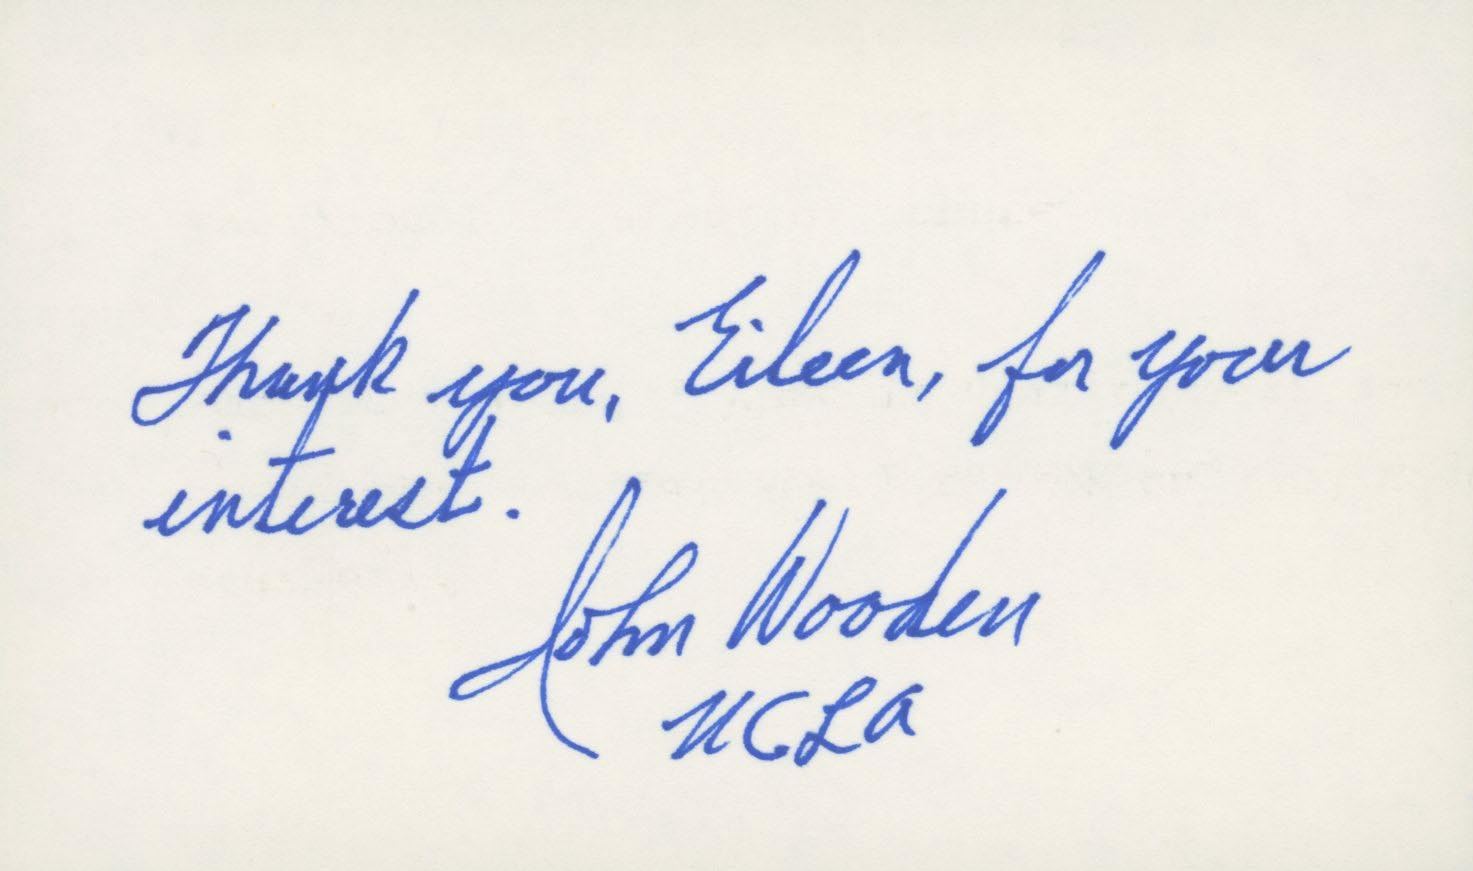 Thank you, Eileen, for your
interest.
John Wooden
UCLA